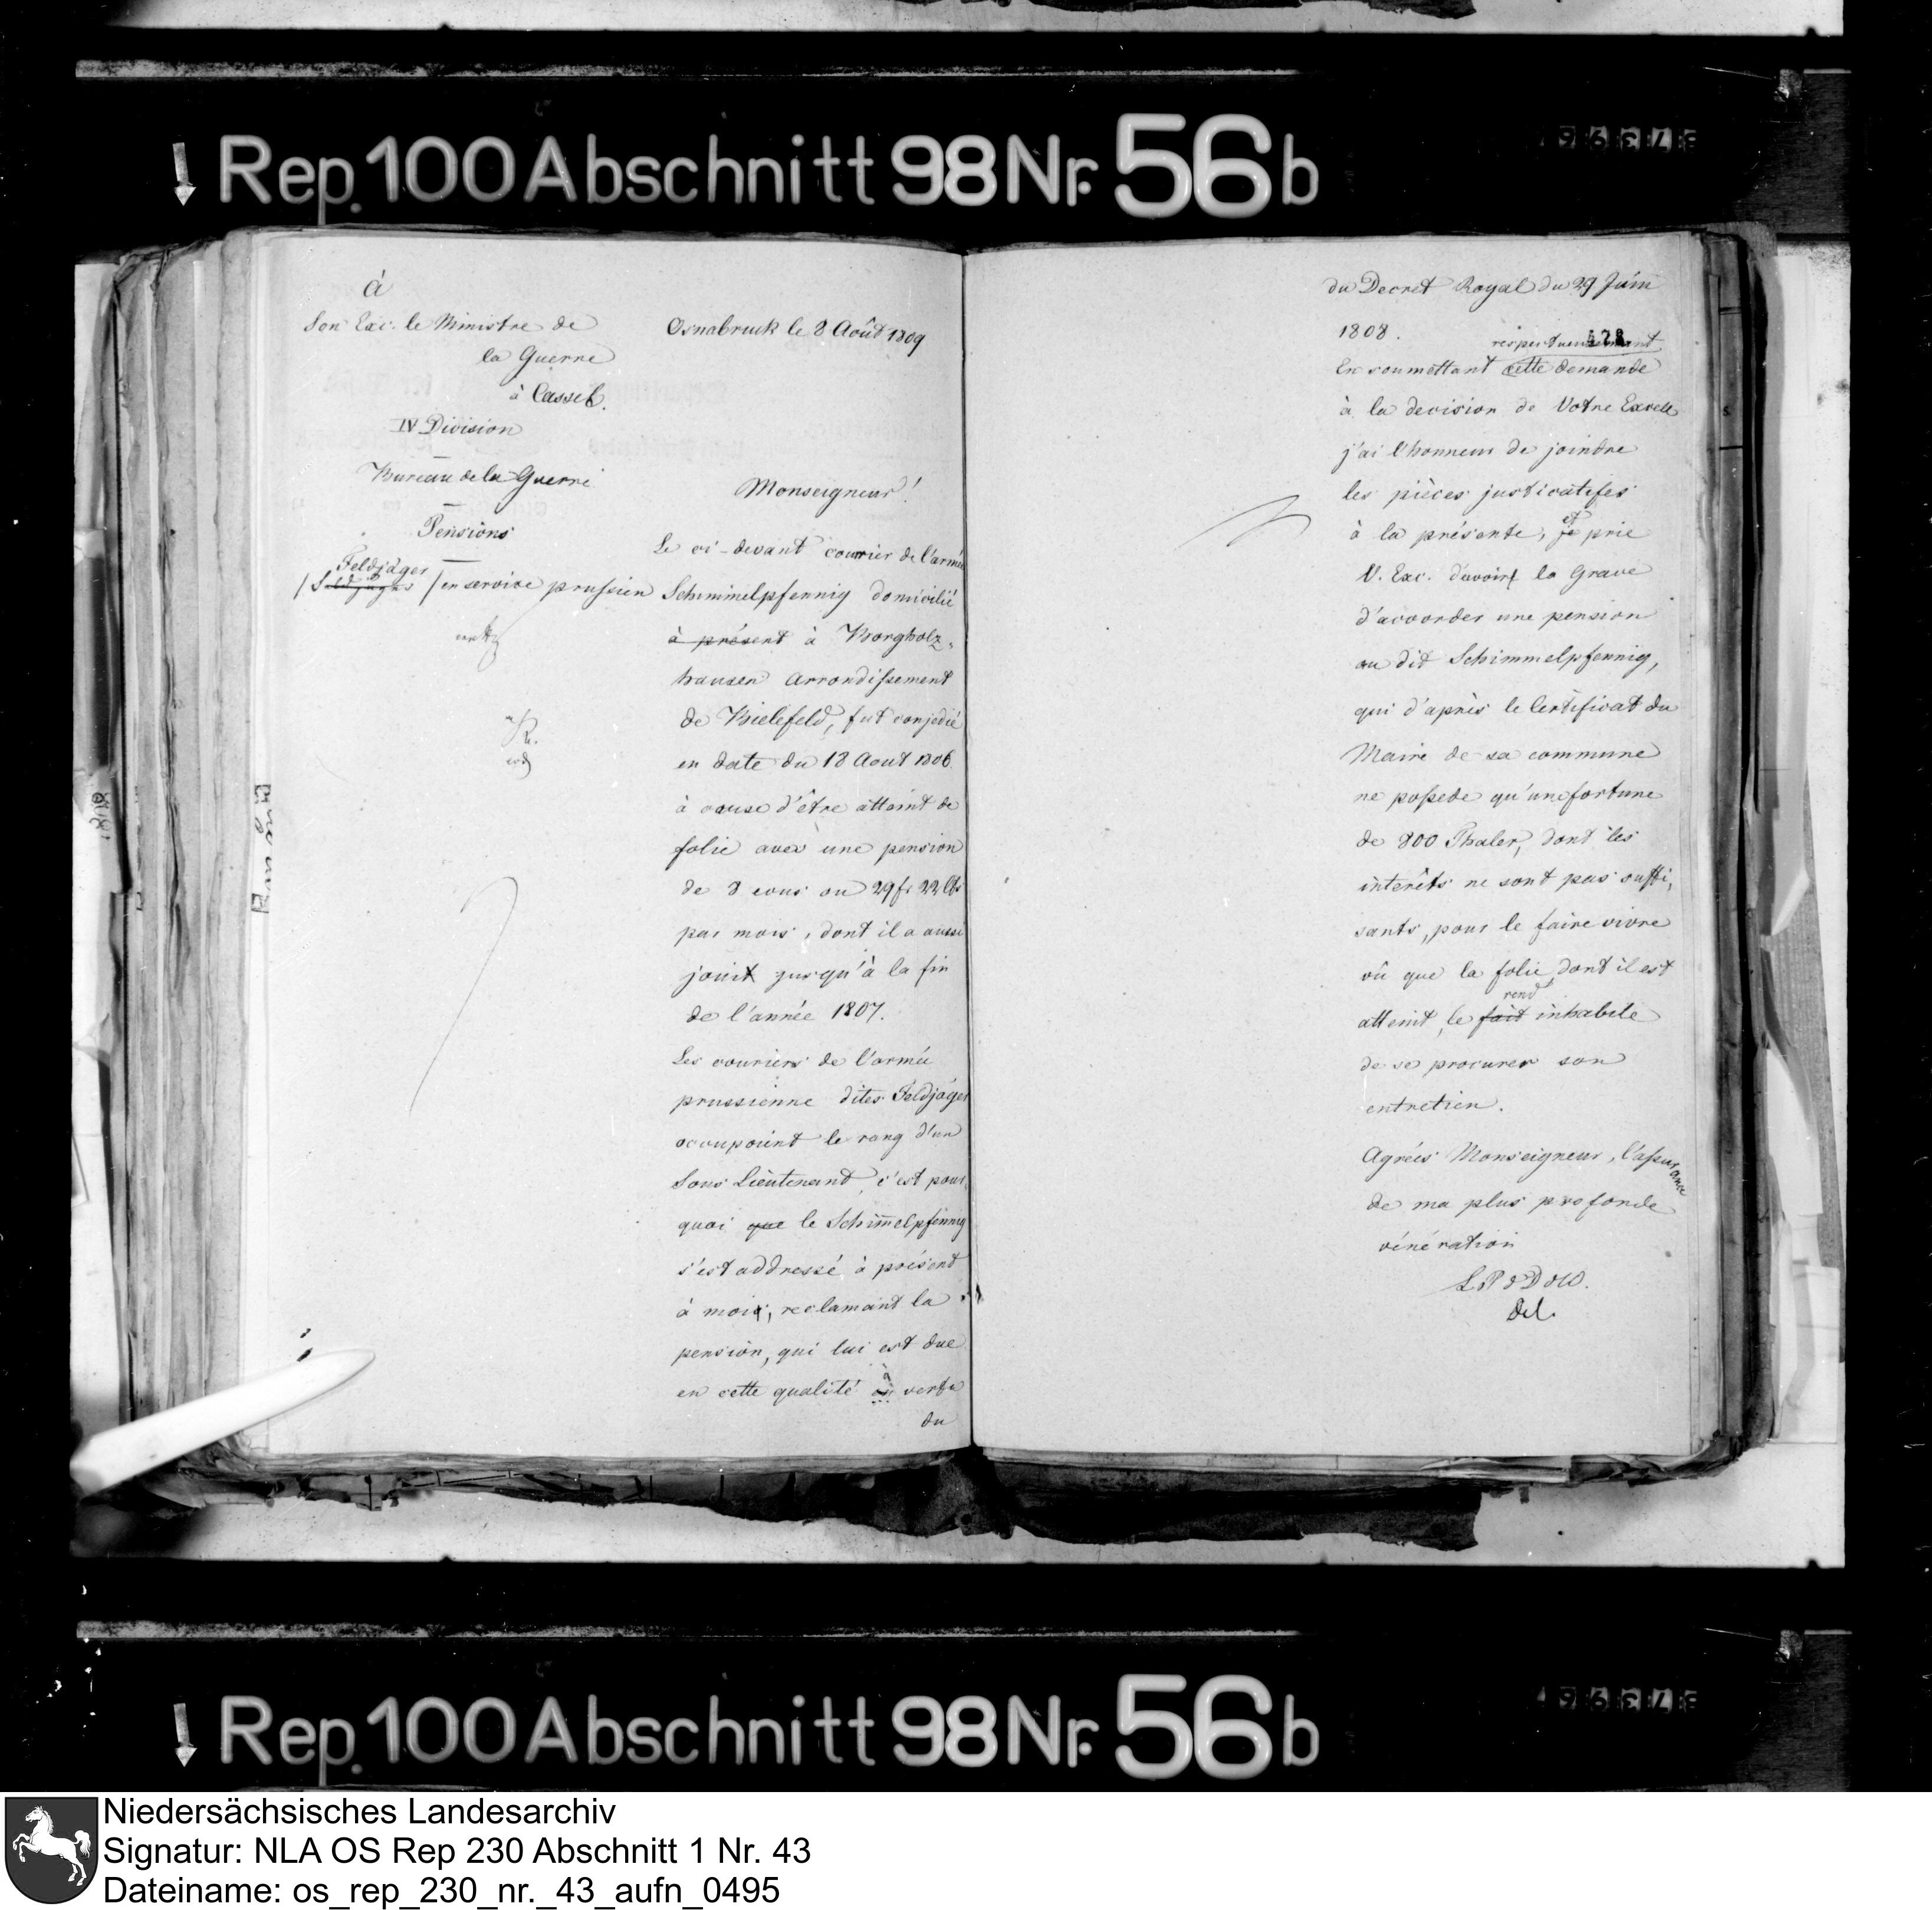 Rep. 100 Abschnitt 98 Nr. 56 b
à
Son Exc. le Ministre de
la Guerre
à Cassel.
IV Division
Bureau de la Guerre
Pensions
Feldjäger
/ Feldjäger / en service prussien
Osnabruck le 8 Août 1809
Monseigneur!
Le ci-devant courrier de l'armée
Schimmelpfennig domicilié
à présent à Borgholz-
hausen Arrondissement
de Bielefeld, fut conjedié
en date du 18 Aout 1806
à cause d'être atteint de
folie avec une pension
de 8 ecus ou 29 fr 22 Cts
par mois, dont il a aussi
jouit jusqu'à la fin
de l'année 1807.
Les couriers de l'armée
prussienne dites Feldjäger
occupoient le rang d'un
Sous Lieutenant, c'est pour
quoi que le Schimmelpfennig
s'est addressé à présent
à moi, reclamant la
pension, qui lui est due
en cette qualité en à vertu
du
du Decret Royal du 29 Juin
1808.
428
respectueusement
En soumettant cette demande
à la decision de Votre Excell
j'ai l'honneur de joindre
les pièces justicatifes
à la présente, et je prie
V. Exc. d'avoir la Grace
d'accorder une pension
au dit Schimmelpfennig,
qui d'après le Certificat du
Maire de sa commune
ne possede qu'une fortune
de 800 Thaler, dont les
interêts ne sont pas suffi,
sants, pour le faire vivre
où que la folie, dont il est
rend
atteint, le fait inhabile
de se procurer son
entretien.
Agréés Monseigneur, l'assurance
de ma plus profonde
vénération
L. P. d D d W.
del.
Rep. 100 Abschnitt 98 Nr. 56 b
Niedersächsisches Landesarchiv
Signatur: NLA OS Rep 230 Abschnitt 1 Nr. 43
Dateiname: os_rep_230_nr._43_aufn_0495